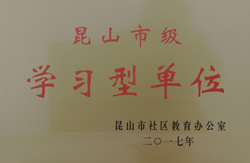 昆山市级
学习型单位
昆山市社区教育办公室
二〇一七年